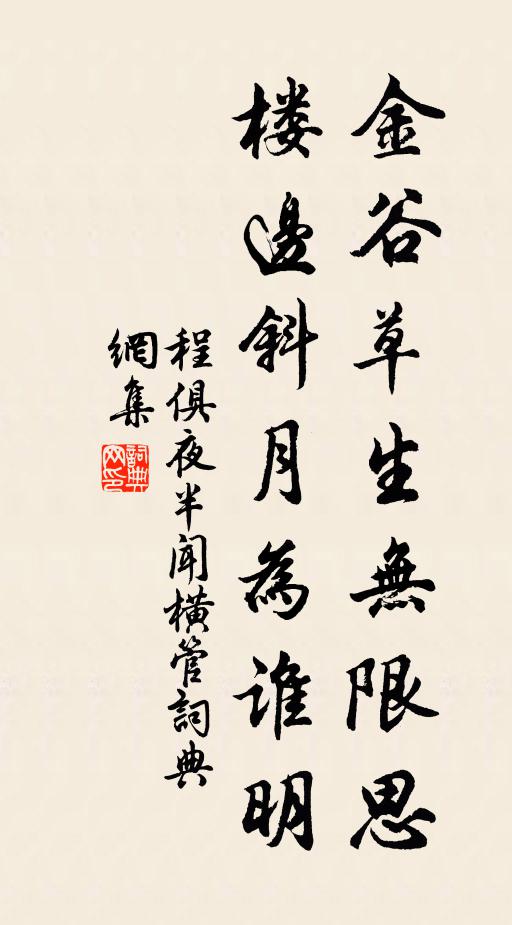 金谷草生無限思
楼邊斜月為誰明
程俱夜半聞橫管詞典
網集
詞典網印